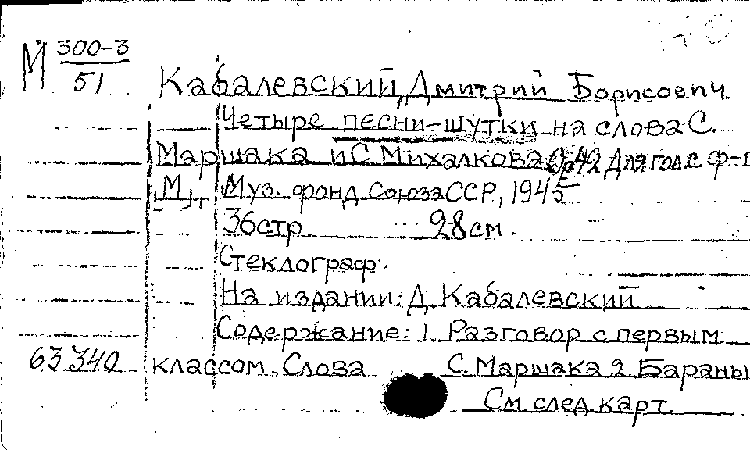 М 300-3
51
Кабалевский, Дмитрий Борисович
Четыре песни-шутки на слова С.
Маршака и С. Михалкова Ор.42 Для гол. с ф-
[М.], Муз. фонд Союза ССР, 1945
36 стр. 28 см.
Стеклограф.
На издании: Д. Кабалевский
Содержание: 1. Разговор с первым
63340 классом. Слова С. Маршака 2. Бараны
См. след. карт.